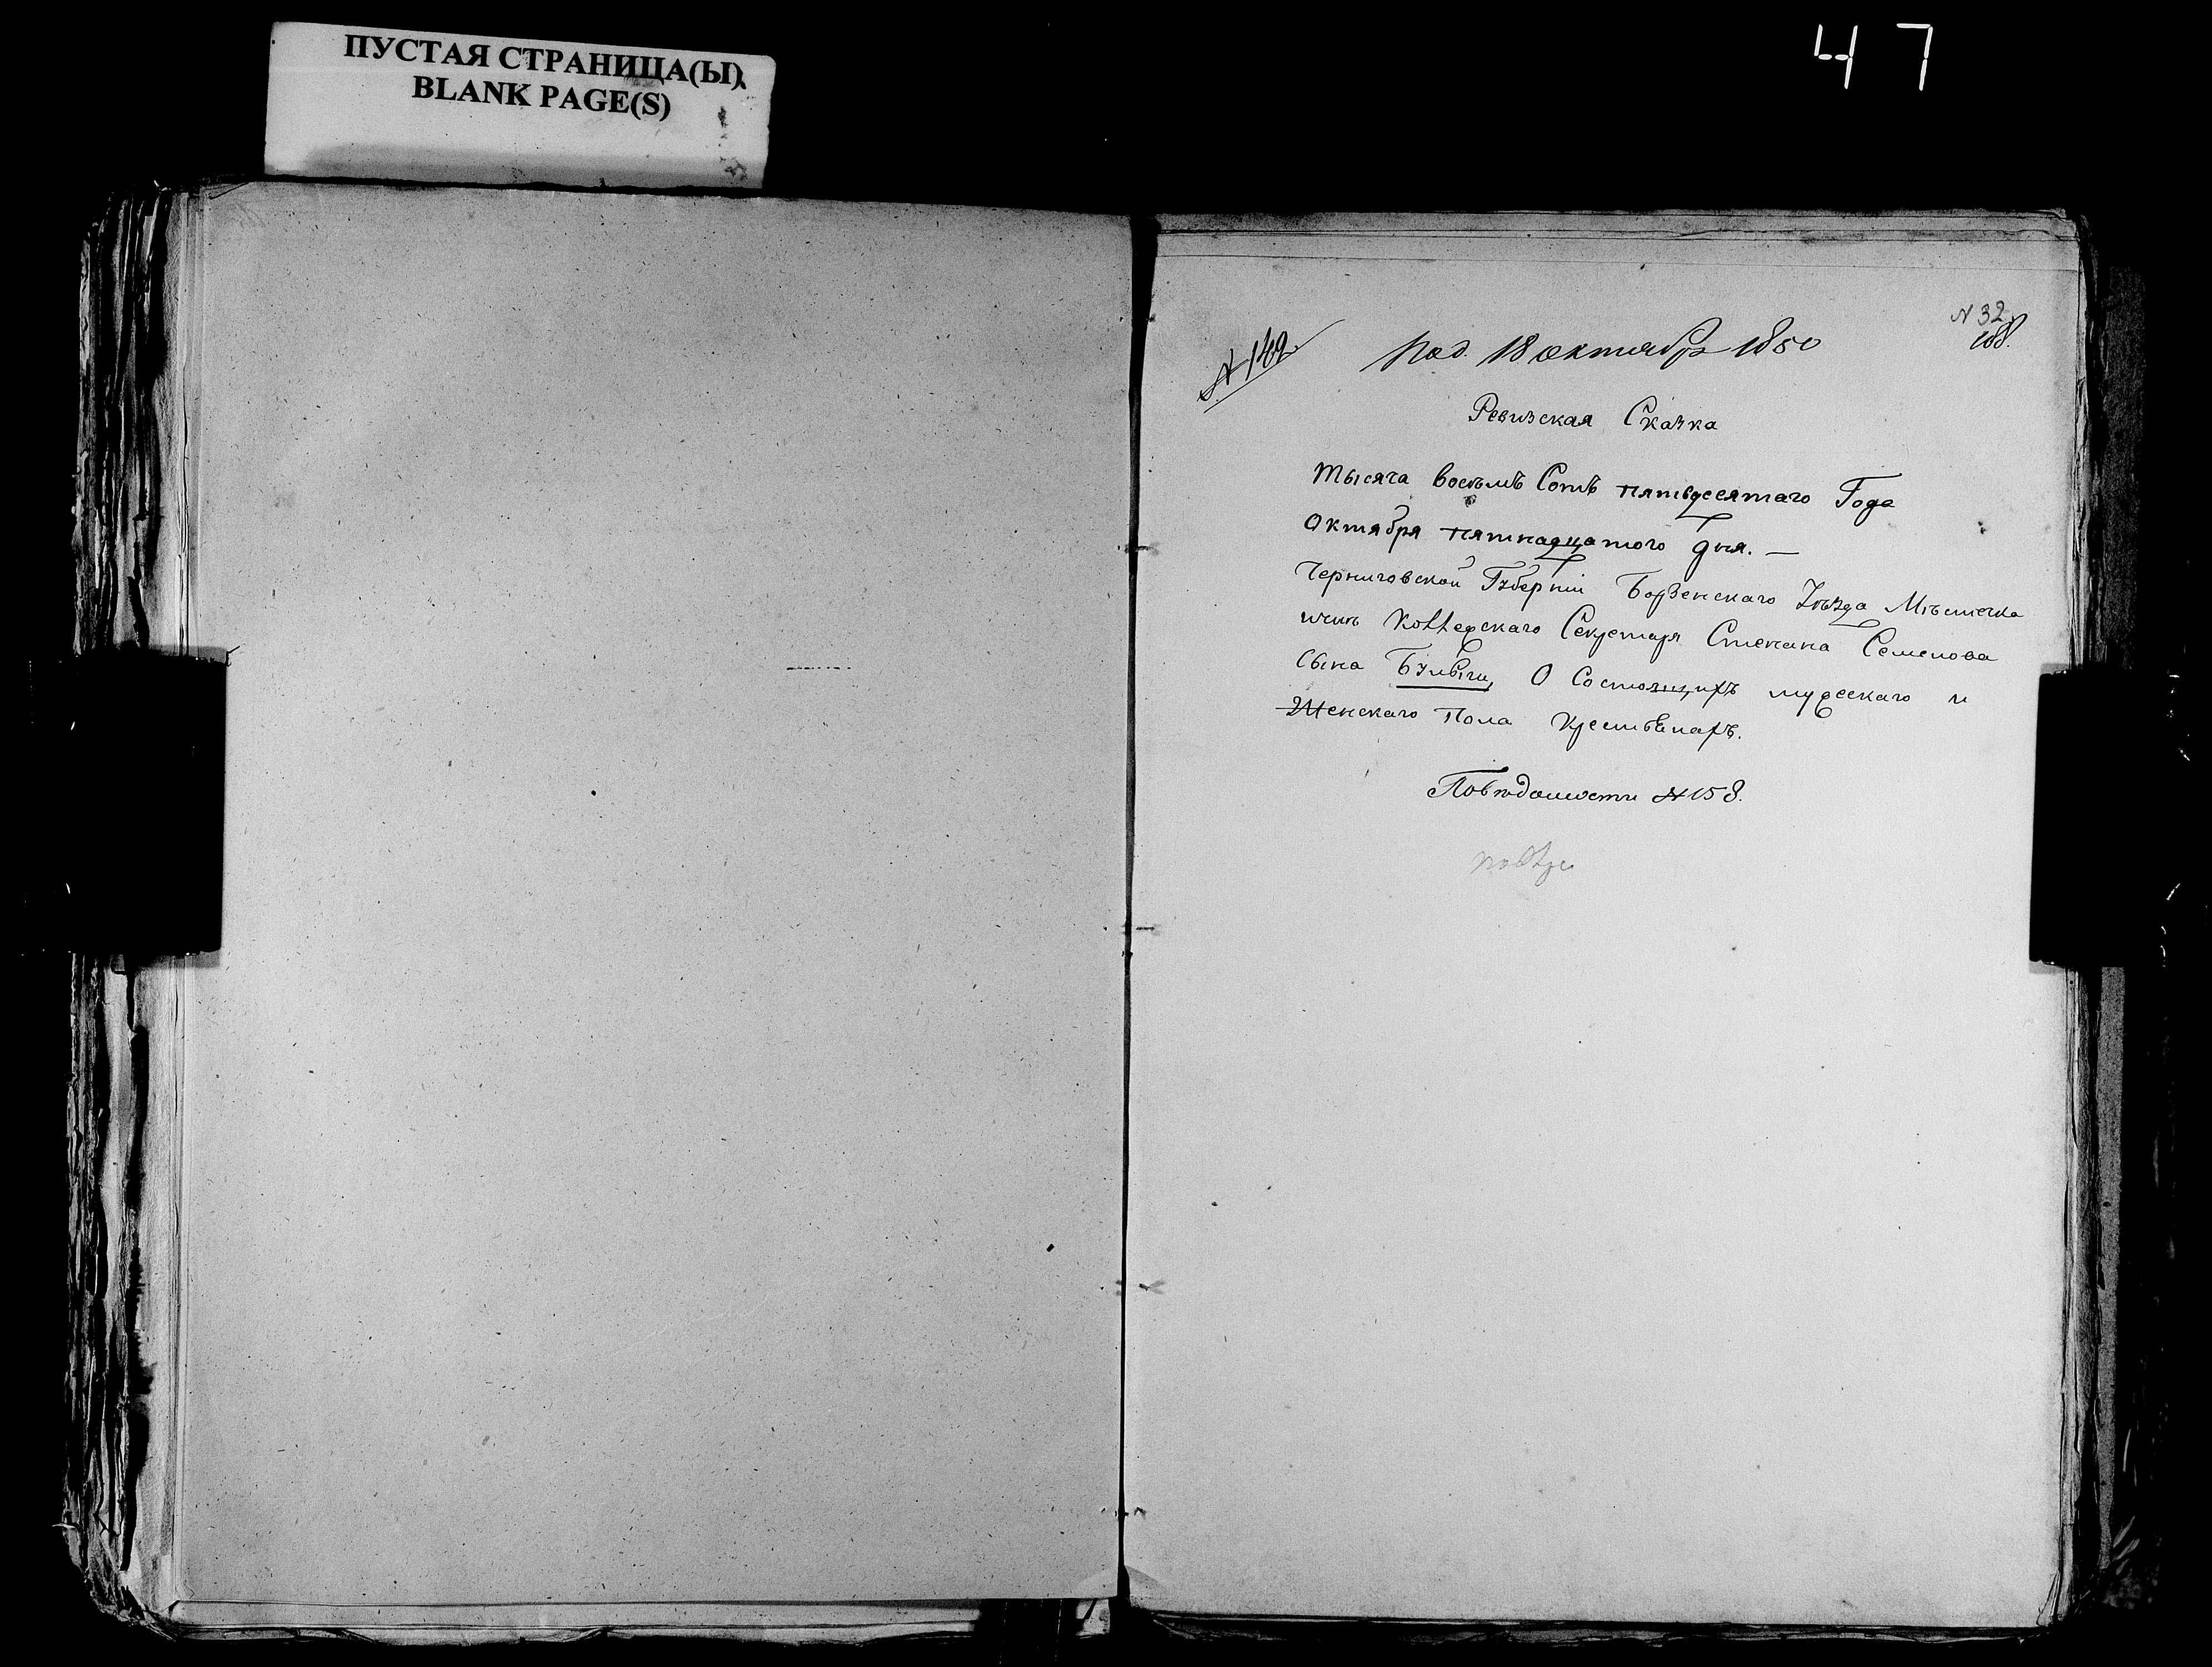 ПУСТАЯ СТРАНИЦА(Ы)
BLANK PAGE(S)
47
N 32
108.
N 142.
Под. 18 октября 1850
Ревизская Сказка
Тысяча восемь Сотъ пятьдесятаго Года
Октября пятнадцатого дня. —
Черниговской Губерніи Борзенскаго Уѣзда Мѣстечка
Коллежскаго Секретаря Степана Семенова
Сына О Состоящихъ мужескаго и
Женскаго Пола Крестьянахъ.
По вѣдомости N 158.